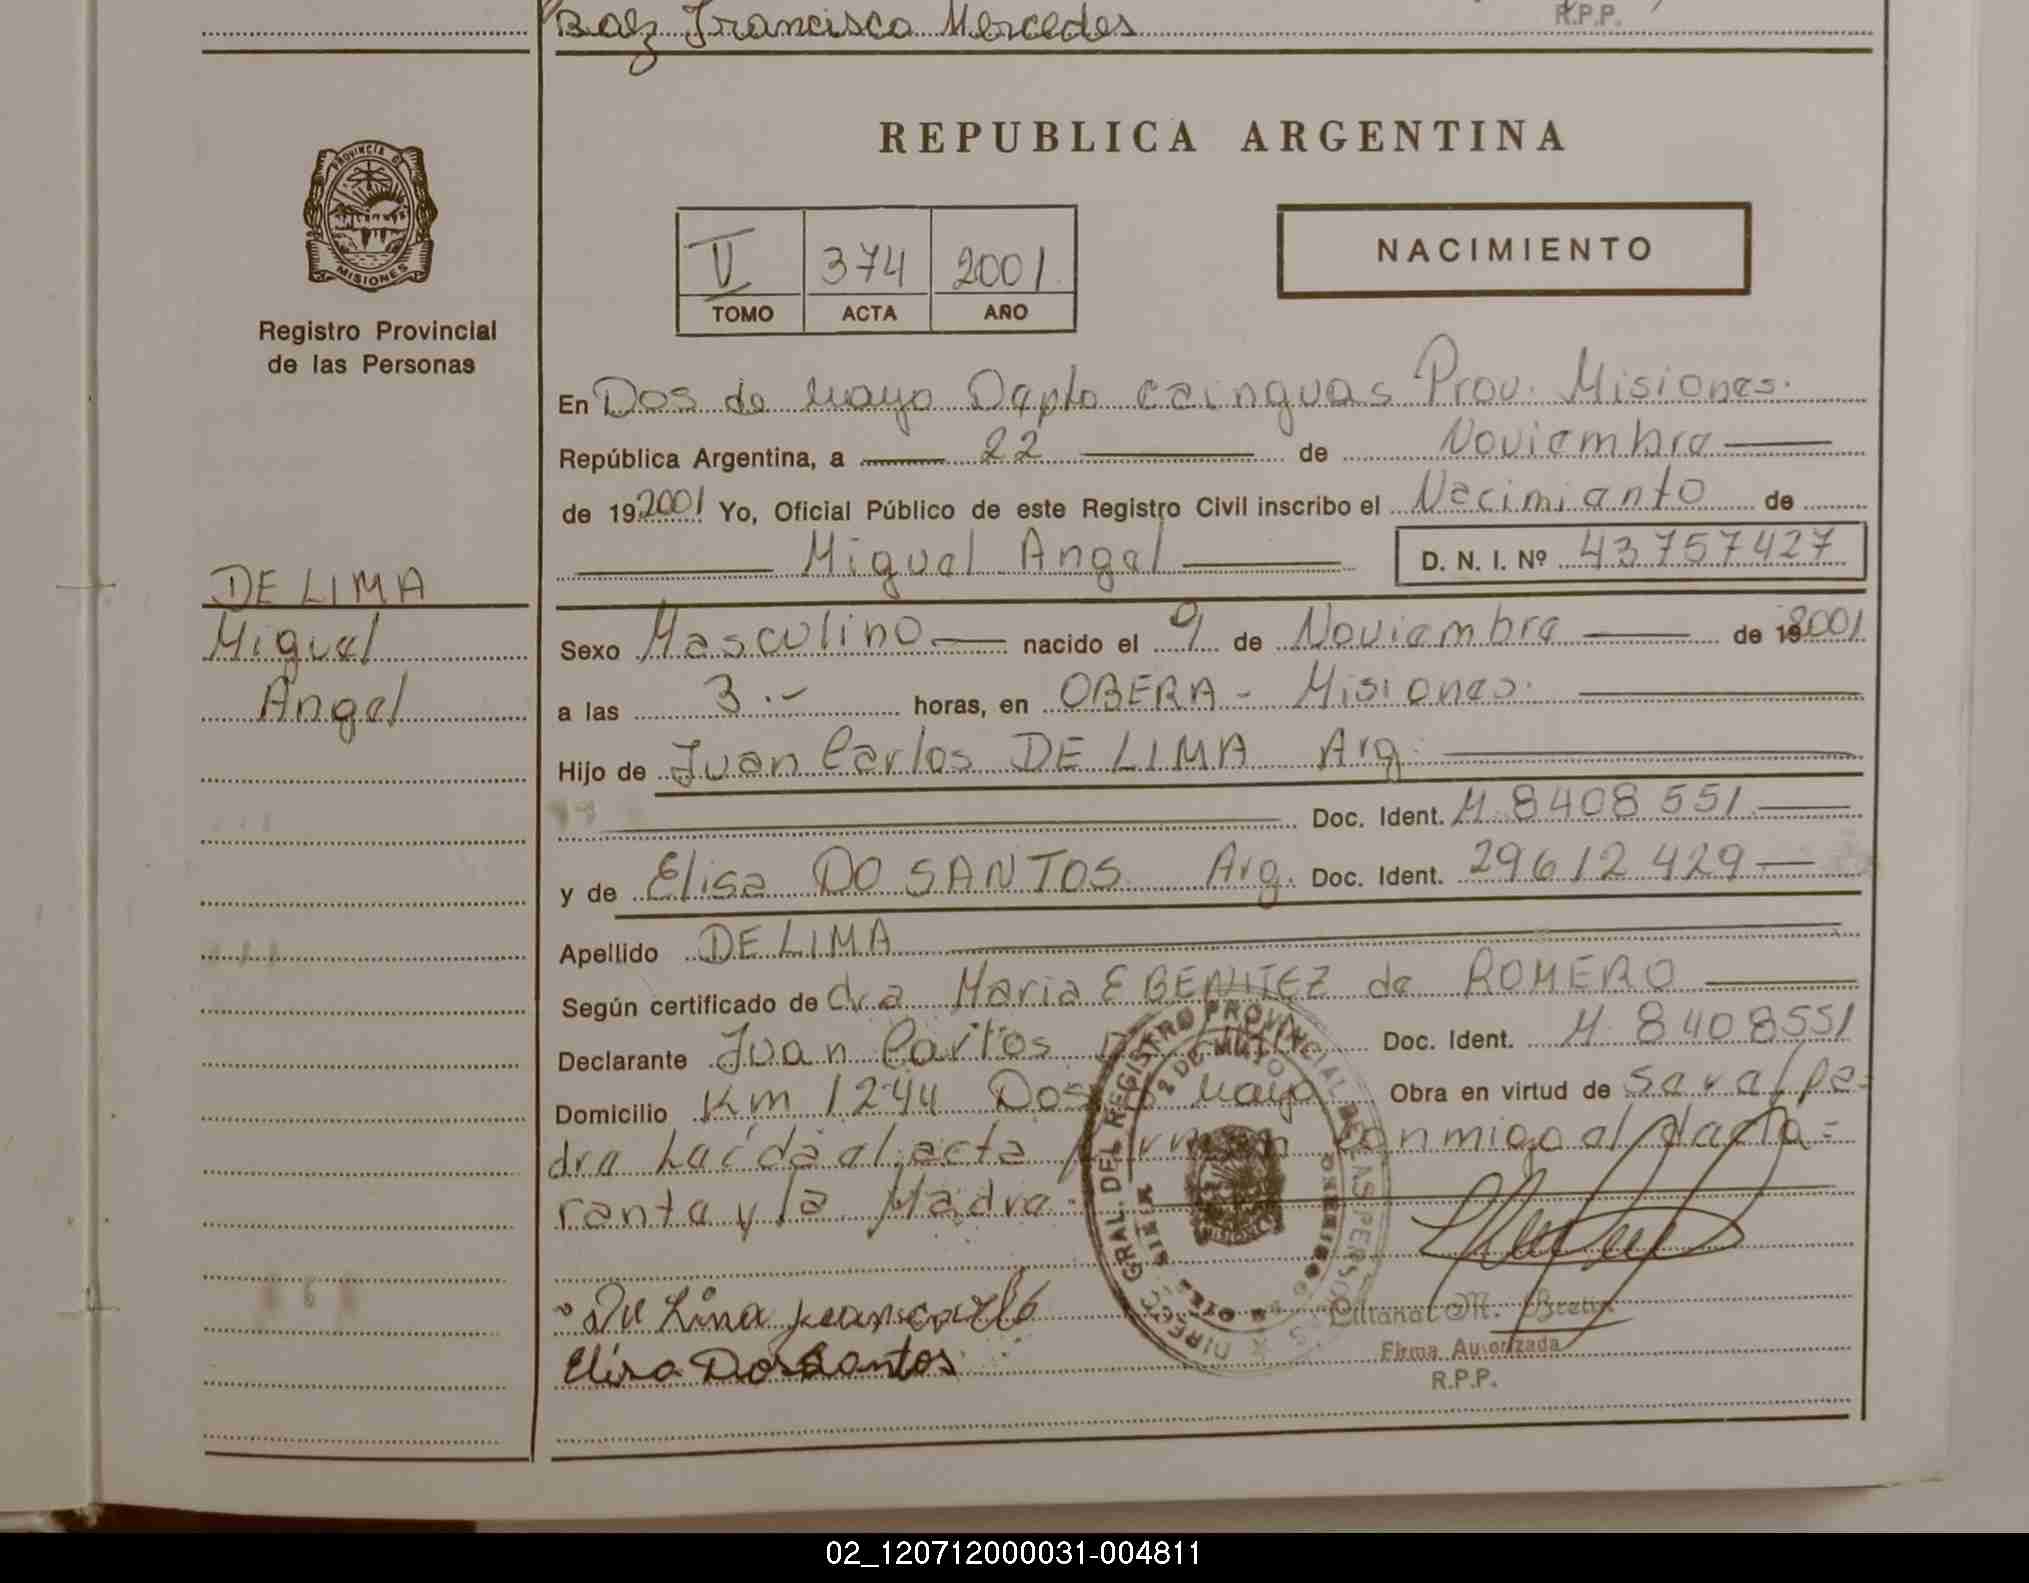 Baez Francisca Mercedes
R.P.P.
REPUBLICA ARGENTINA
PROVINCIA DE
MISIONES
Registro Provincial
de las Personas
V 374 2001
TOMO ACTA AÑO
NACIMIENTO
En Dos de Mayo Dapto cainguas Prov. Misiones.
República Argentina, a 22 de Noviembre
de 192001 Yo, Oficial Público de este Registro Civil inscribo el Nacimiento de
Miguel Angel D. N. I. Nº 43757427
DE LIMA
Miguel
Angel
Sexo Masculino nacido el 9 de Noviembre de 192001
a las 3.- horas, en OBERA - Misiones.
Hijo de Juan Carlos DE LIMA Arg.
Doc. Ident. M 8408551
y de Elisa DO SANTOS Arg. Doc. Ident. 29612429
Apellido DE LIMA
Según certificado de dra Maria E BENITEZ de ROMERO
Declarante Juan Carlos Doc. Ident. M 8408551
Domicilio Km 1244 Dos de Mayo Obra en virtud de ser el pa=
dre Leída el acta firman conmigo el decla=
rante y la Madre
De Lima juan carlo
Elisa Dos Santos
DIRECC. GRAL. DEL REGISTRO PROVINCIAL DE LAS PERSONAS
2 DE MAYO
MISIONES
Liliana M.
Firma Autorizada
R.P.P.
02_120712000031-004811